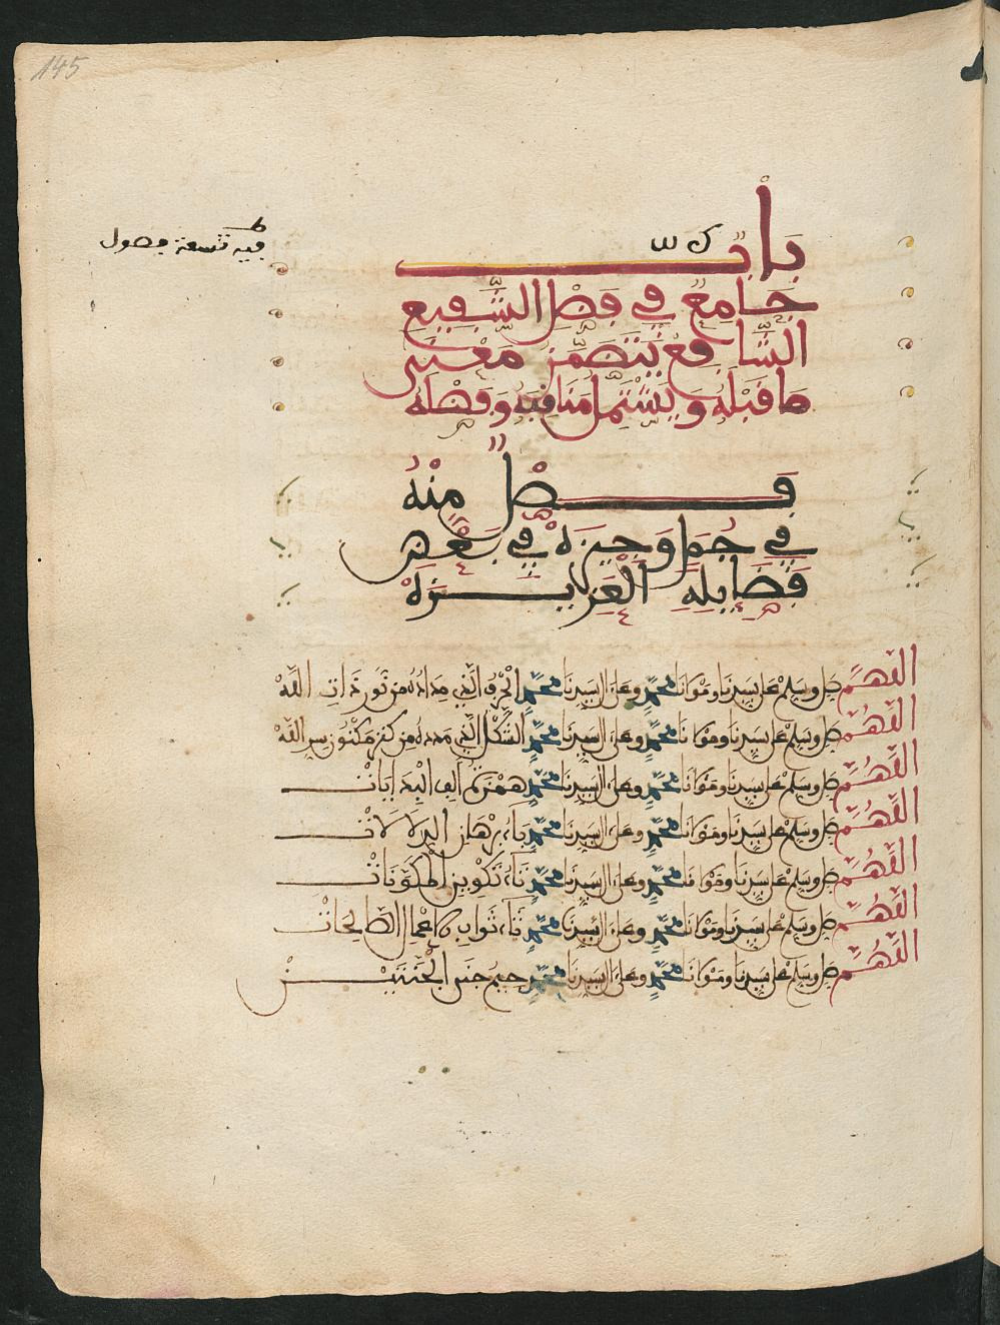 145
فيه تسعة فصول
باب
جامع في فضل الشفيع
الشافع يتضمن معنى
ما قبله ويشتمل مناقبه وفضله
فصل منه
في جمل وجيزة في بعض
فضايله العزيزة
اللهم صل وسلم على سيدنا ومولانا محمد وعلى ال سيدنا محمد الحرف الذي مداده من نور ذات الله
اللهم صل وسلم على سيدنا ومولانا محمد وعلى ال سيدنا محمد الشكل الذي مدده من كنز مكنون سر الله
اللهم صل وسلم على سيدنا ومولانا محمد وعلى ال سيدنا محمد همزة الف البدايات
اللهم صل وسلم على سيدنا ومولانا محمد وعلى ال سيدنا محمد باء برهان الدلالات
اللهم صل وسلم على سيدنا ومولانا محمد وعلى ال سيدنا محمد تاء تكوين المكونات
اللهم صل وسلم على سيدنا ومولانا محمد وعلى ال سيدنا محمد ثاء ثواب الاعمال الصالحات
اللهم صل وسلم على سيدنا ومولانا محمد وعلى ال سيدنا محمد جيم جنى الجنتين